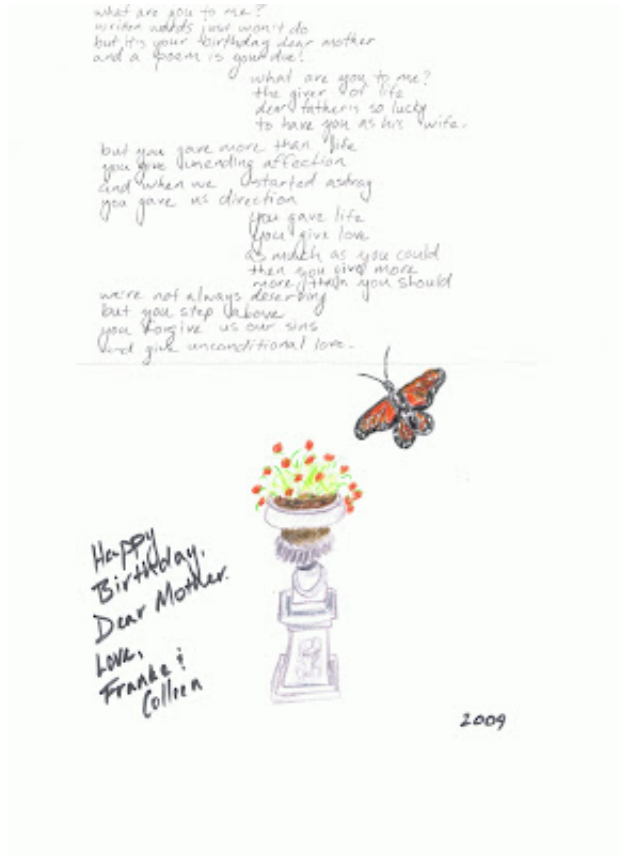 what are you to me?
written words just won't do
but it's your birthday dear mother
and a poem is your due!
what are you to me?
the giver of life
dear father is so lucky
to have you as his wife.
but you gave more than life
you give unending affection
and when we started astray
you gave us direction
you gave life
you give love
as much as you could
then you give more
more than you should
we're not always deserving
but you step above
you forgive us our sins
and give unconditional love.
Happy
Birthday,
Dear Mother.
Love,
Franke &
Colleen
2009